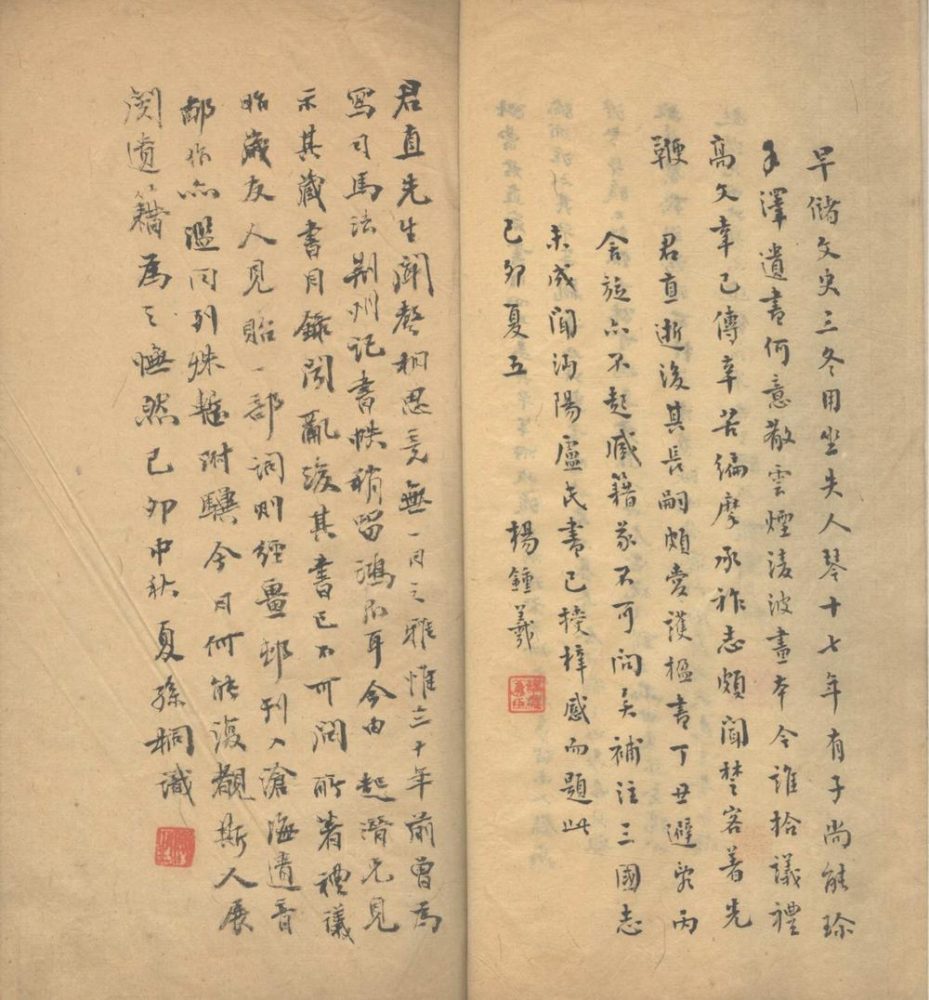 早储文史三冬用坐失人琴十七年有子尚能珍
手澤遺書何意散雲煙淩波畫本今誰拾議禮
高文幸已傳辛苦編摩承祚志頗聞楚客著先
鞭　君直逝後其長嗣頗愛護楹書丁丑避兵丙
舍旋亦不起臧籍家不可問矣補注三國志
未成聞沔陽盧氏書已授梓感而題此
己卯夏五　楊鍾羲
君直先生聞聲相思竟無一日之雅惟三十年前曾為
寫司馬法荊州記書帙稍留鴻爪耳今由　起潛兄見
示其藏書目錄聞亂後其書已不可問所著禮議
昨歲友人見貽一部詞則經畺邨刊入滄海遺音
鄙作亦濫同列殊慙附驥今日何能復覩斯人展
閱遺籍為之憮然己卯中秋夏孫桐識